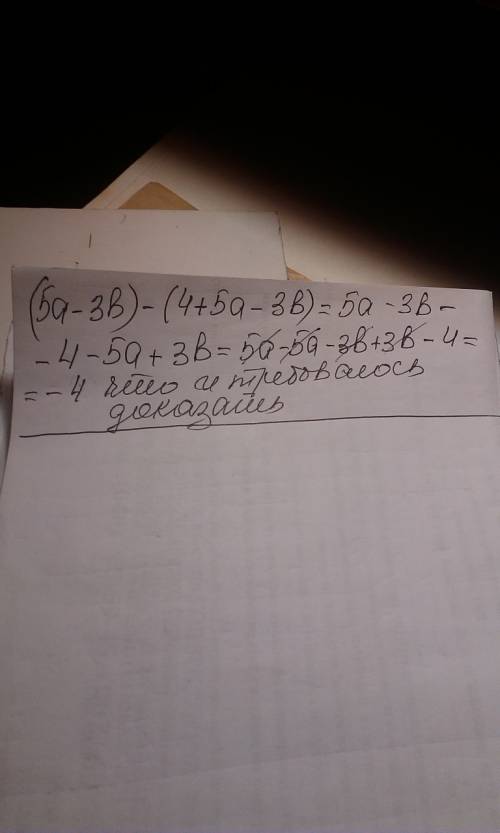 (5a-3в)-(4+5a-3в)=5a-3в-
-4-5a+3в=5a-5a-3в+3в-4=
=-4 что и требовалось
доказать